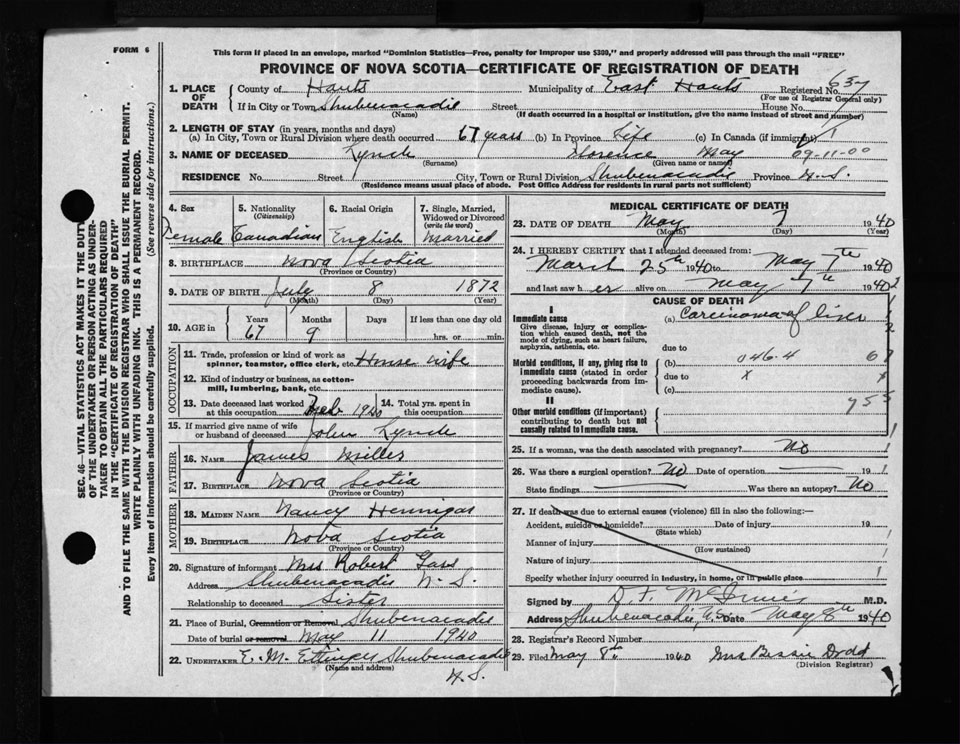 FORM 6
This form if placed in an envelope, marked "Dominion Statistics—Free, penalty for improper use $300," and properly addressed will pass through the mail "FREE"
PROVINCE OF NOVA SCOTIA—CERTIFICATE OF REGISTRATION OF DEATH
1. PLACE OF DEATH County of Hants Municipality of East Hants Registered No. 637
(For use of Registrar General only)
If in City or Town Shubenacadie Street House No.
(Name) (If death occurred in a hospital or institution, give the name instead of street and number)
2. LENGTH OF STAY (in years, months and days)
(a) In City, Town or Rural Division where death occurred 67 years (b) In Province Life (c) In Canada (if immigrant)
3. NAME OF DECEASED Lynch Florence May 09-11-00
(Surname) (Given name or names)
RESIDENCE No. Street City, Town or Rural Division Shubenacadie Province N.S.
(Residence means usual place of abode. Post Office Address for residents in rural parts not sufficient)
4. Sex 5. Nationality (Citizenship) 6. Racial Origin 7. Single, Married, Widowed or Divorced (write the word)
Female Canadian English Married
8. BIRTHPLACE Nova Scotia
(Province or Country)
9. DATE OF BIRTH July 8 1872
(Month) (Day) (Year)
10. AGE in Years Months Days If less than one day old
67 9 hrs. or min.
OCCUPATION
11. Trade, profession or kind of work as spinner, teamster, office clerk, etc. House wife
12. Kind of industry or business, as cotton-mill, lumbering, bank, etc.
13. Date deceased last worked at this occupation Feb 1940 14. Total yrs. spent in this occupation
15. If married give name of wife or husband of deceased John Lynch
FATHER
16. NAME James Miller
17. BIRTHPLACE Nova Scotia
(Province or Country)
MOTHER
18. MAIDEN NAME Nancy Hennigar
19. BIRTHPLACE Nova Scotia
(Province or Country)
20. Signature of informant Mrs Robert Gass
Address Shubenacadie N.S.
Relationship to deceased Sister
21. Place of Burial, Cremation or Removal Shubenacadie
Date of burial or removal May 11 1940
22. UNDERTAKER E. M. Ettinger Shubenacadie
(Name and address)
N.S.
MEDICAL CERTIFICATE OF DEATH
23. DATE OF DEATH May 7 1940
(Month) (Day) (Year)
24. I HEREBY CERTIFY that I attended deceased from:
March 25th 1940 to May 7th 1940
and last saw her alive on May 7th 1940
CAUSE OF DEATH
I
Immediate cause (a) Carcinoma of liver
Give disease, injury or complication which caused death, not the mode of dying, such as heart failure, asphyxia, asthenia, etc.
due to
Morbid conditions, if any, giving rise to immediate cause (stated in order proceeding backwards from immediate cause). (b) 046.4
due to x
(c)
II
Other morbid conditions (if important) contributing to death but not causally related to immediate cause.
25. If a woman, was the death associated with pregnancy? No
26. Was there a surgical operation? No Date of operation 19
State findings Was there an autopsy? No
27. If death was due to external causes (violence) fill in also the following:—
Accident, suicide or homicide? Date of injury 19
(State which)
Manner of injury
(How sustained)
Nature of injury
Specify whether injury occurred in industry, in home, or in public place
Signed by D. F. McInnis M.D.
Address Shubenacadie, N.S. Date May 8th 1940
28. Registrar's Record Number
29. Filed May 8th 1940 Mrs Bessie Dodd
(Division Registrar)
SEC. 46—VITAL STATISTICS ACT MAKES IT THE DUTY
OF THE UNDERTAKER OR PERSON ACTING AS UNDER-
TAKER TO OBTAIN ALL THE PARTICULARS REQUIRED
IN THE "CERTIFICATE OF REGISTRATION OF DEATH"
AND TO FILE THE SAME WITH THE DIVISION REGISTRAR WHO SHALL ISSUE THE BURIAL PERMIT.
WRITE PLAINLY WITH UNFADING INK. THIS IS A PERMANENT RECORD.
Every item of information should be carefully supplied. (See reverse side for instructions.)